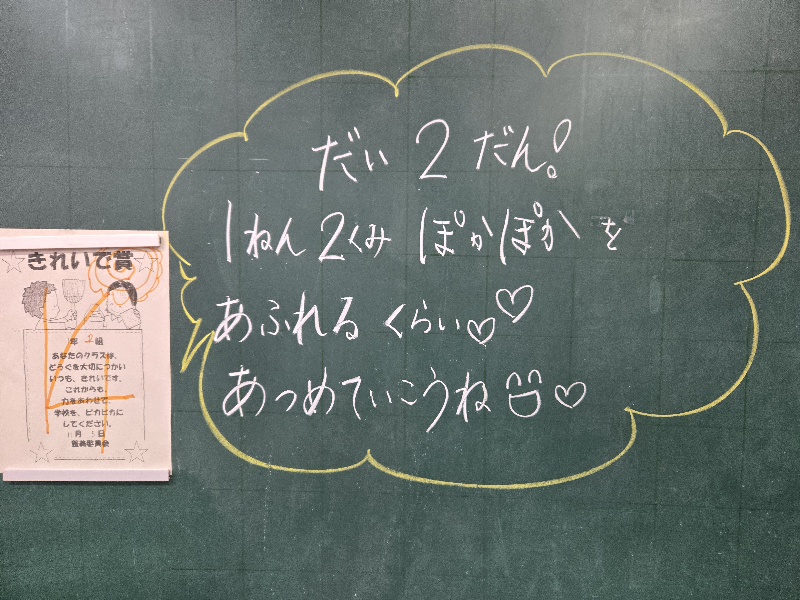 だい2だん!
1ねん2くみ ぽかぽかを
あふれるくらい♡♡
あつめていこうね♡
きれいで賞
年2組
あなたのクラスは、
どうぐを大切につかい
いつも、きれいです。
これからも、
力をあわせて、
学校を、ピカピカに
してください。
月 日